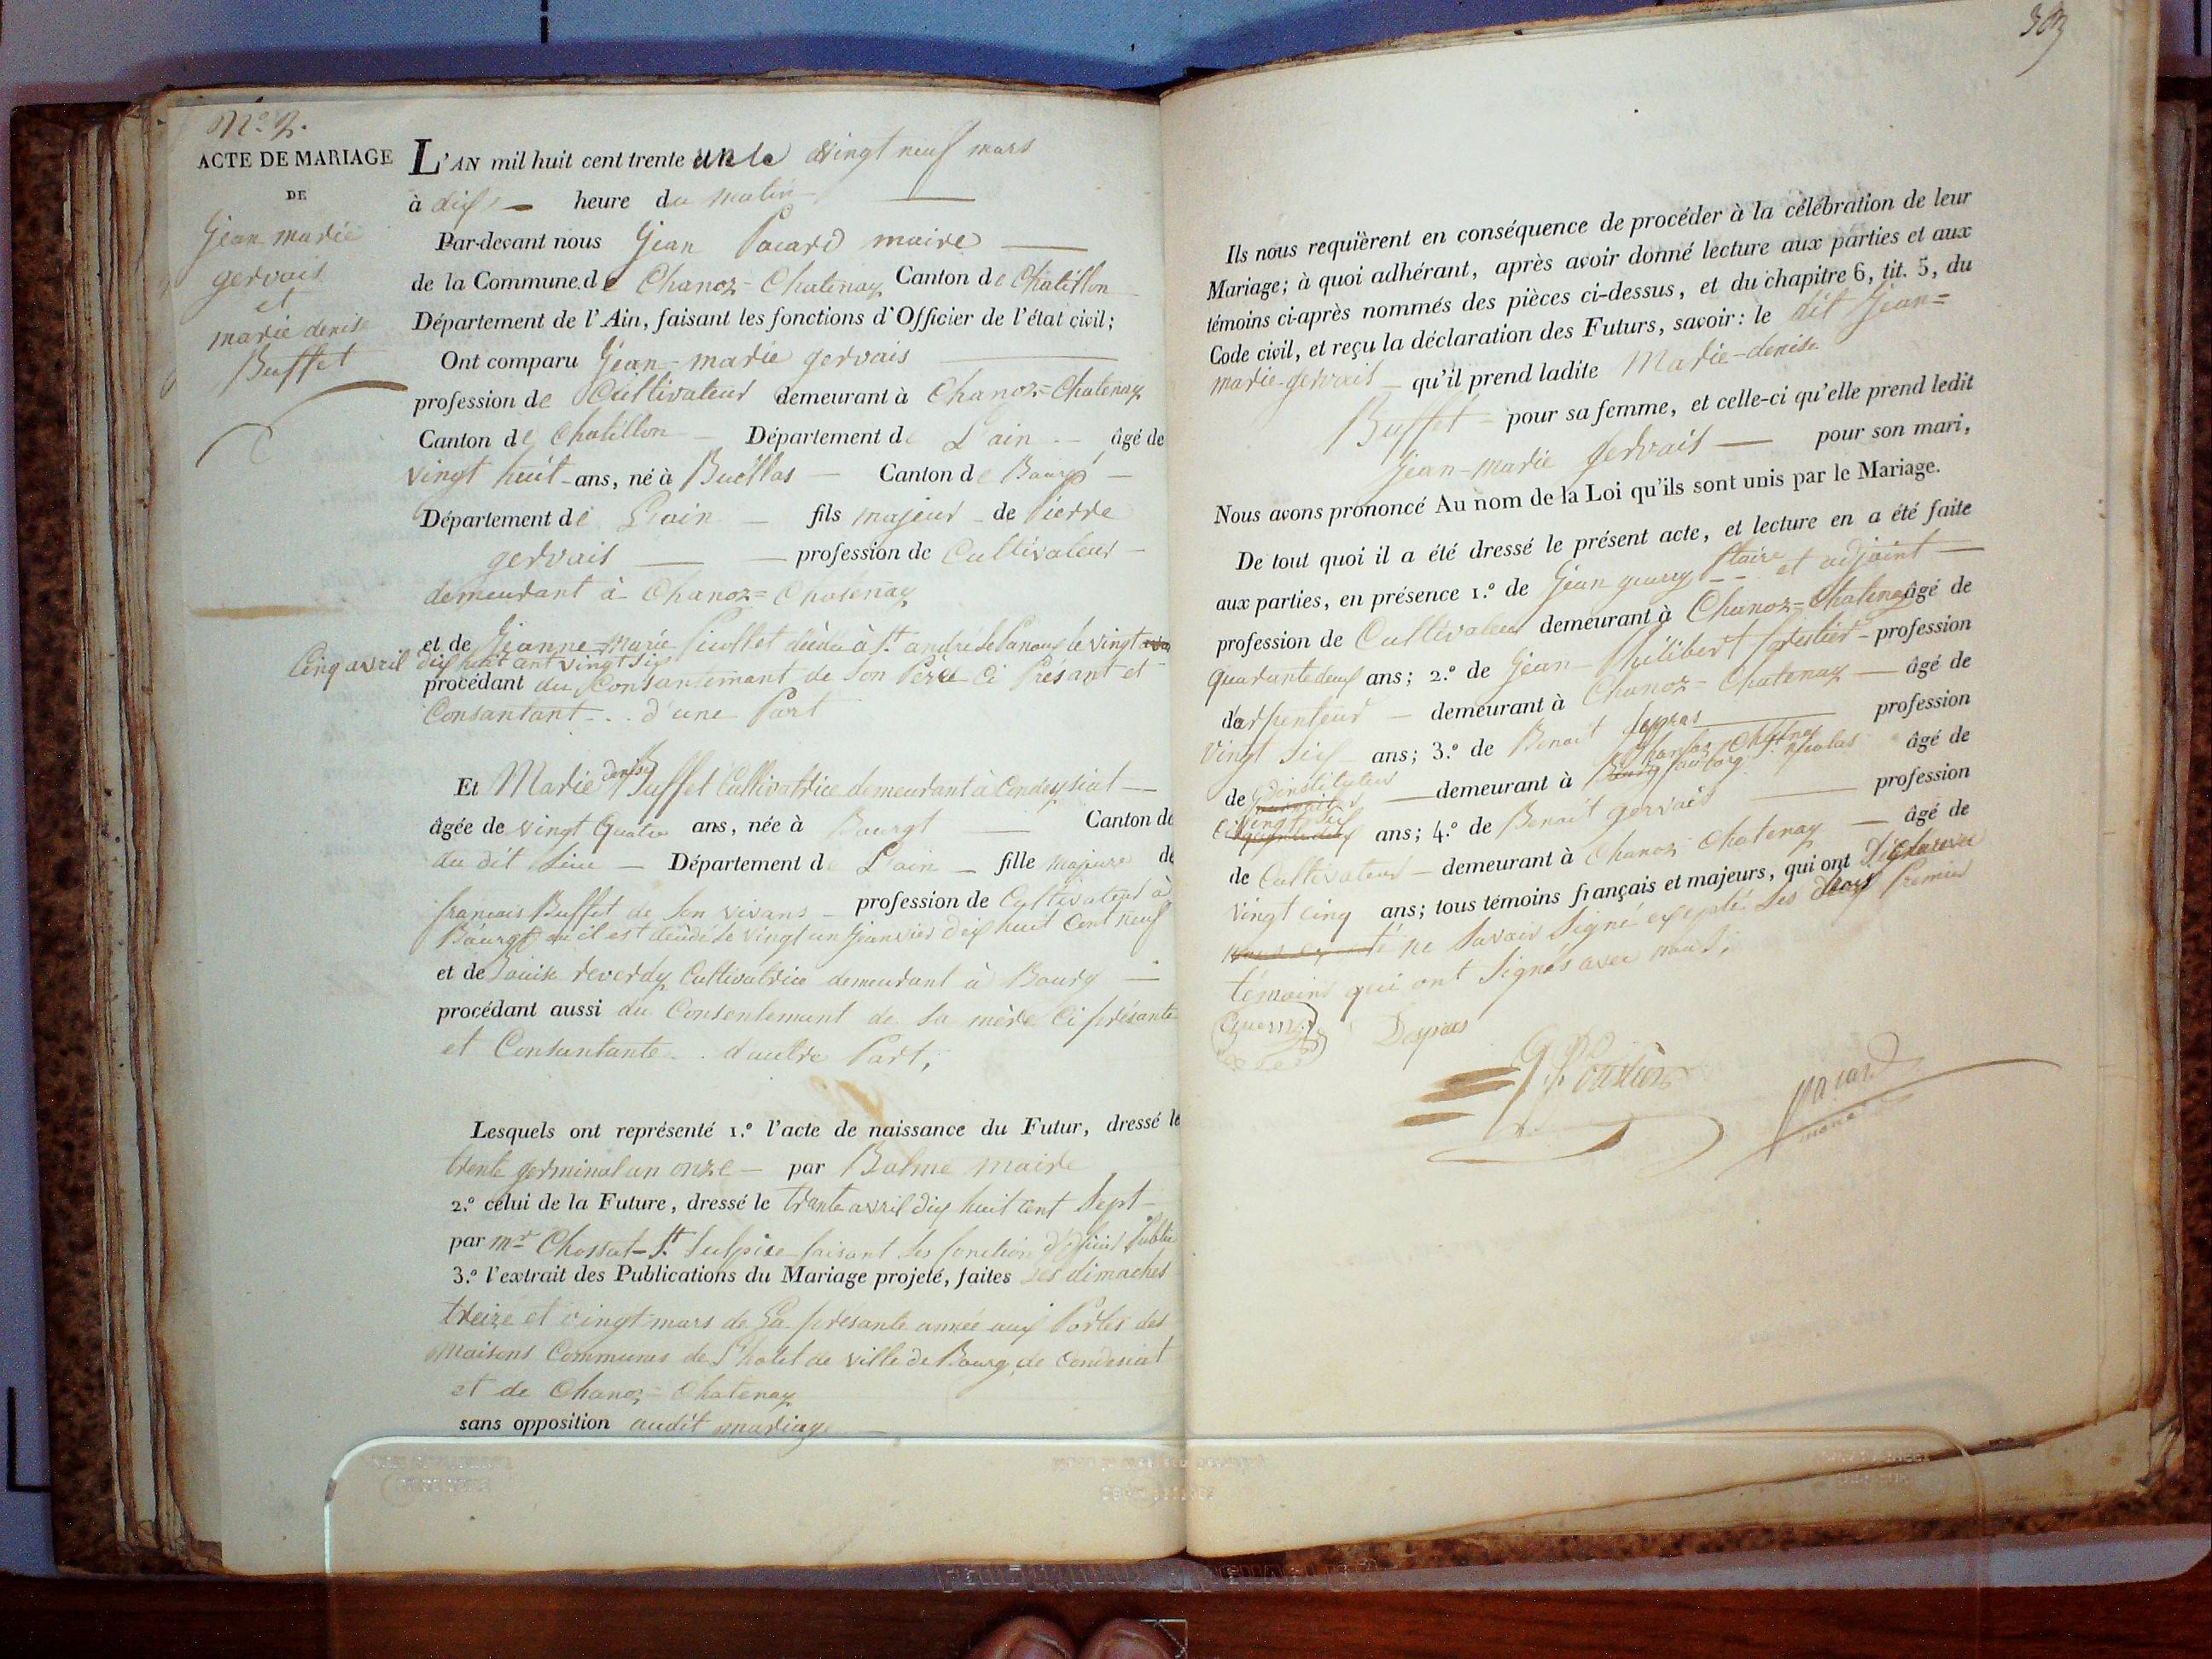 N.o 2.
ACTE DE MARIAGE
DE
Jean marie
gervais
et
marie denise
Buffet
L'AN mil huit cent trente un le vingt neuf mars
à dix heure du matin
Par-devant nous Jean Pacard maire
de la Commune de Chanoz-Chatenay Canton de Chatillon
Département de l'Ain, faisant les fonctions d'Officier de l'état civil;
Ont comparu Jean-marie gervais
profession de Cultivateur demeurant à Chanoz=Chatenay
Canton de Chatillon Département de L'ain âgé de
vingt huit ans, né à Buellas Canton de Bourg
Département de L'ain fils majeur de Pierre
gervais profession de Cultivateur
demeurant à Chanoz=Chatenay
et de Jeanne=Marie décédée à St. andré le Panoux le vingt
Cinq avril dix huit cent vingt six
procédant du Consantement de Son Père Ci Présant et
Consantant d'une Part
Et Marie denise Buffet Cultivatrice demeurant à Condeysiat
âgée de vingt Quatre ans, née à Bourgt Canton de
du dit Lieu Département de L'ain fille majeure de
francois Buffet de Son vivans profession de Cultivateur à
Bourgt ou il est décédé le vingt un Jeanvier dix huit Cent neuf
et de Louise reverdy Cultivatrice demeurant à Bourg
procédant aussi du Consentement de Sa mère Ci présante
et Consantante d'autre Part,
Lesquels ont représenté 1.º l'acte de naissance du Futur, dressé le
trente germinal an onze par Balme maire
2.º celui de la Future, dressé le trante avril dix huit cent Sept
par mr Chossat-St. Sulpice faisant les fonction d'officier Public
3.º l'extrait des Publications du Mariage projeté, faites les dimaches
treize et vingt mars de La présante année aux Portes des
maisons Communes de L'hotel de ville de Bourg, de Condesiat
et de Chanoz=Chatenay
sans opposition audit mariage
Ils nous requièrent en conséquence de procéder à la célébration de leur
Mariage; à quoi adhérant, après avoir donné lecture aux parties et aux
témoins ci-après nommés des pièces ci-dessus, et du chapitre 6, tit. 5, du
Code civil, et reçu la déclaration des Futurs, savoir: le dit Jean=
marie-gervais qu'il prend ladite Marie-denise
Buffet pour sa femme, et celle-ci qu'elle prend ledit
Jean-marie gervais pour son mari,
Nous avons prononcé Au nom de la Loi qu'ils sont unis par le Mariage.
De tout quoi il a été dressé le présent acte, et lecture en a été faite
aux parties, en présence 1.º de Jean et adjoint
profession de Cultivateur demeurant à Chanoz=Chatenay âgé de
quarante deux ans; 2.º de Jean Philibert forestier profession
d'arpenteur demeurant à Chanoz-Chatenay âgé de
Vingt Six ans; 3.º de Benoit profession
de d'instituteur demeurant à Chanoz Chatenay âgé de
Vingt Six ans; 4.º de Benoit gervais profession
de Cultivateur demeurant à Chanoz Chatenay âgé de
vingt cinq ans; tous témoins français et majeurs, qui ont
ne Savoir Signé excepté Les Premier
témoins qui ont Signés avec nous,
Pacard
maire